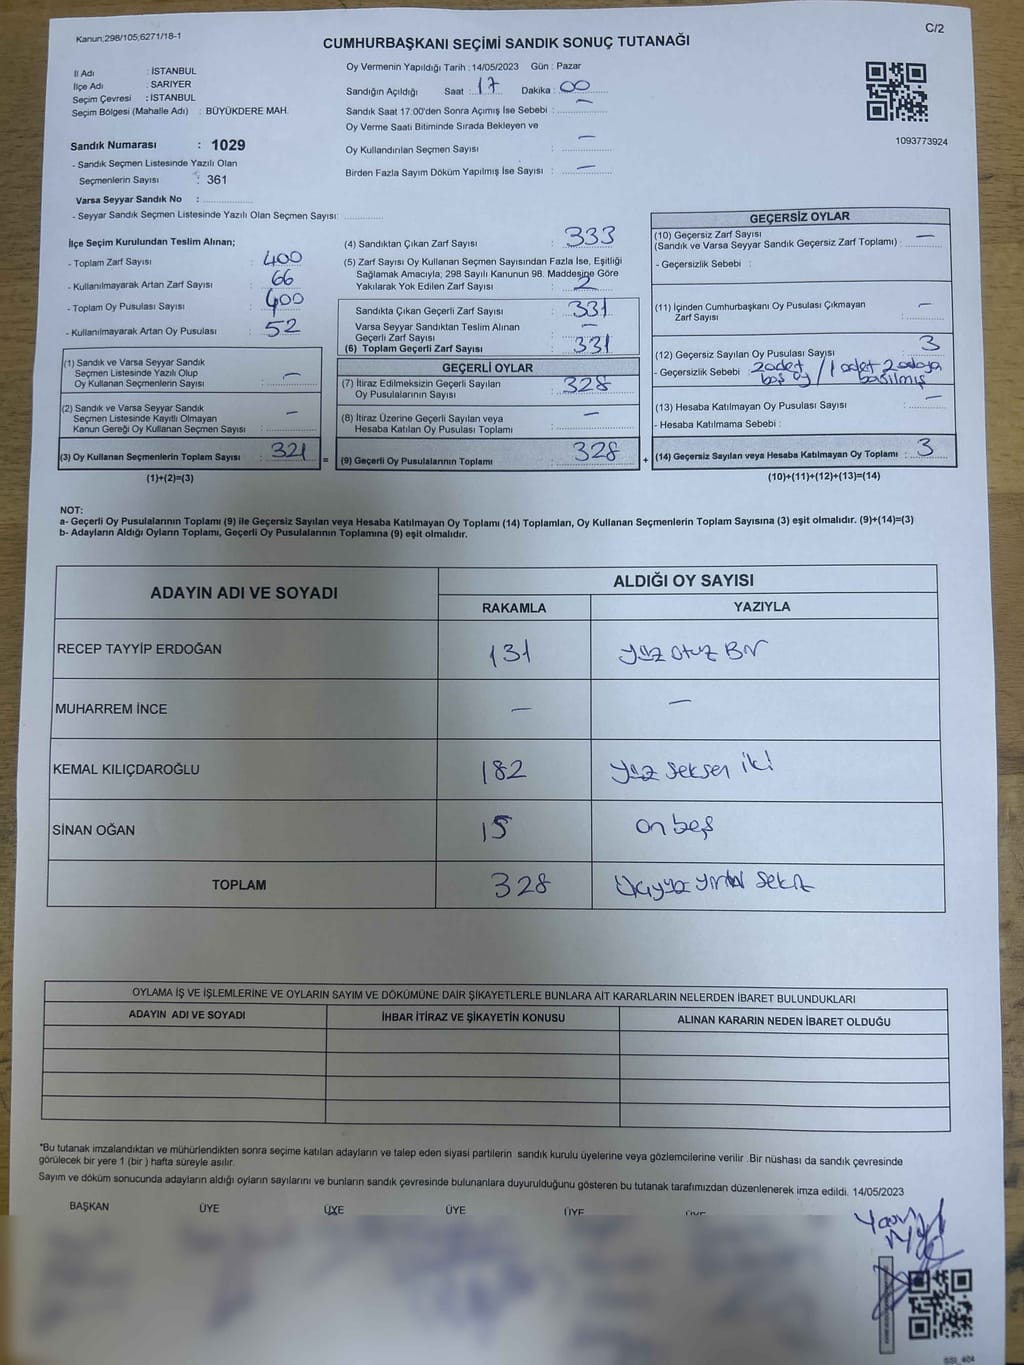 Kanun;298/105;6271/18-1
C/2
CUMHURBAŞKANI SEÇİMİ SANDIK SONUÇ TUTANAĞI
İl Adı : İSTANBUL
İlçe Adı : SARIYER
Seçim Çevresi : İSTANBUL
Seçim Bölgesi (Mahalle Adı) : BÜYÜKDERE MAH.
Sandık Numarası : 1029
- Sandık Seçmen Listesinde Yazılı Olan
Seçmenlerin Sayısı : 361
Varsa Seyyar Sandık No :
- Seyyar Sandık Seçmen Listesinde Yazılı Olan Seçmen Sayısı:
Oy Vermenin Yapıldığı Tarih : 14/05/2023 Gün : Pazar
Sandığın Açıldığı Saat : 17 Dakika : 00
Sandık Saat 17:00'den Sonra Açımış İse Sebebi : —
Oy Verme Saati Bitiminde Sırada Bekleyen ve
Oy Kullandırılan Seçmen Sayısı : —
Birden Fazla Sayım Döküm Yapılmış İse Sayısı : —
1093773924
İlçe Seçim Kurulundan Teslim Alınan;
- Toplam Zarf Sayısı : 400
- Kullanılmayarak Artan Zarf Sayısı : 66
- Toplam Oy Pusulası Sayısı : 400
- Kullanılmayarak Artan Oy Pusulası : 52
(1) Sandık ve Varsa Seyyar Sandık
Seçmen Listesinde Yazılı Olup
Oy Kullanan Seçmenlerin Sayısı : —
(2) Sandık ve Varsa Seyyar Sandık
Seçmen Listesinde Kayıtlı Olmayan
Kanun Gereği Oy Kullanan Seçmen Sayısı : —
(3) Oy Kullanan Seçmenlerin Toplam Sayısı : 321 =
(1)+(2)=(3)
(4) Sandıktan Çıkan Zarf Sayısı : 333
(5) Zarf Sayısı Oy Kullanan Seçmen Sayısından Fazla İse, Eşitliği
Sağlamak Amacıyla; 298 Sayılı Kanunun 98. Maddesine Göre
Yakılarak Yok Edilen Zarf Sayısı : 2
Sandıkta Çıkan Geçerli Zarf Sayısı : 331
Varsa Seyyar Sandıktan Teslim Alınan
Geçerli Zarf Sayısı : —
(6) Toplam Geçerli Zarf Sayısı : 331
GEÇERLİ OYLAR
(7) İtiraz Edilmeksizin Geçerli Sayılan
Oy Pusulalarının Sayısı : 328
(8) İtiraz Üzerine Geçerli Sayılan veya
Hesaba Katılan Oy Pusulası Toplamı : —
(9) Geçerli Oy Pusulalarının Toplamı : 328 +
GEÇERSİZ OYLAR
(10) Geçersiz Zarf Sayısı
(Sandık ve Varsa Seyyar Sandık Geçersiz Zarf Toplamı) : —
- Geçersizlik Sebebi :
(11) İçinden Cumhurbaşkanı Oy Pusulası Çıkmayan
Zarf Sayısı : —
(12) Geçersiz Sayılan Oy Pusulası Sayısı : 3
- Geçersizlik Sebebi : 2 adet boş oy / 1 adet 2 adaya
basılmış
(13) Hesaba Katılmayan Oy Pusulası Sayısı : —
- Hesaba Katılmama Sebebi :
(14) Geçersiz Sayılan veya Hesaba Katılmayan Oy Toplamı : 3
(10)+(11)+(12)+(13)=(14)
NOT:
a- Geçerli Oy Pusulalarının Toplamı (9) ile Geçersiz Sayılan veya Hesaba Katılmayan Oy Toplamı (14) Toplamları, Oy Kullanan Seçmenlerin Toplam Sayısına (3) eşit olmalıdır. (9)+(14)=(3)
b- Adayların Aldığı Oyların Toplamı, Geçerli Oy Pusulalarının Toplamına (9) eşit olmalıdır.
ADAYIN ADI VE SOYADI
ALDIĞI OY SAYISI
RAKAMLA YAZIYLA
RECEP TAYYİP ERDOĞAN 131 yüz otuz Bir
MUHARREM İNCE — —
KEMAL KILIÇDAROĞLU 182 yüz seksen iki
SİNAN OĞAN 15 on beş
TOPLAM 328 üçyüz yirmi sekiz
OYLAMA İŞ VE İŞLEMLERİNE VE OYLARIN SAYIM VE DÖKÜMÜNE DAİR ŞİKAYETLERLE BUNLARA AİT KARARLARIN NELERDEN İBARET BULUNDUKLARI
ADAYIN ADI VE SOYADI İHBAR İTİRAZ VE ŞİKAYETİN KONUSU ALINAN KARARIN NEDEN İBARET OLDUĞU
*Bu tutanak imzalandıktan ve mühürlendikten sonra seçime katılan adayların ve talep eden siyasi partilerin sandık kurulu üyelerine veya gözlemcilerine verilir .Bir nüshası da sandık çevresinde
görülecek bir yere 1 (bir ) hafta süreyle asılır.
Sayım ve döküm sonucunda adayların aldığı oyların sayılarını ve bunların sandık çevresinde bulunanlara duyurulduğunu gösteren bu tutanak tarafımızdan düzenlenerek imza edildi. 14/05/2023
BAŞKAN ÜYE ÜYE ÜYE ÜYE ÜYE